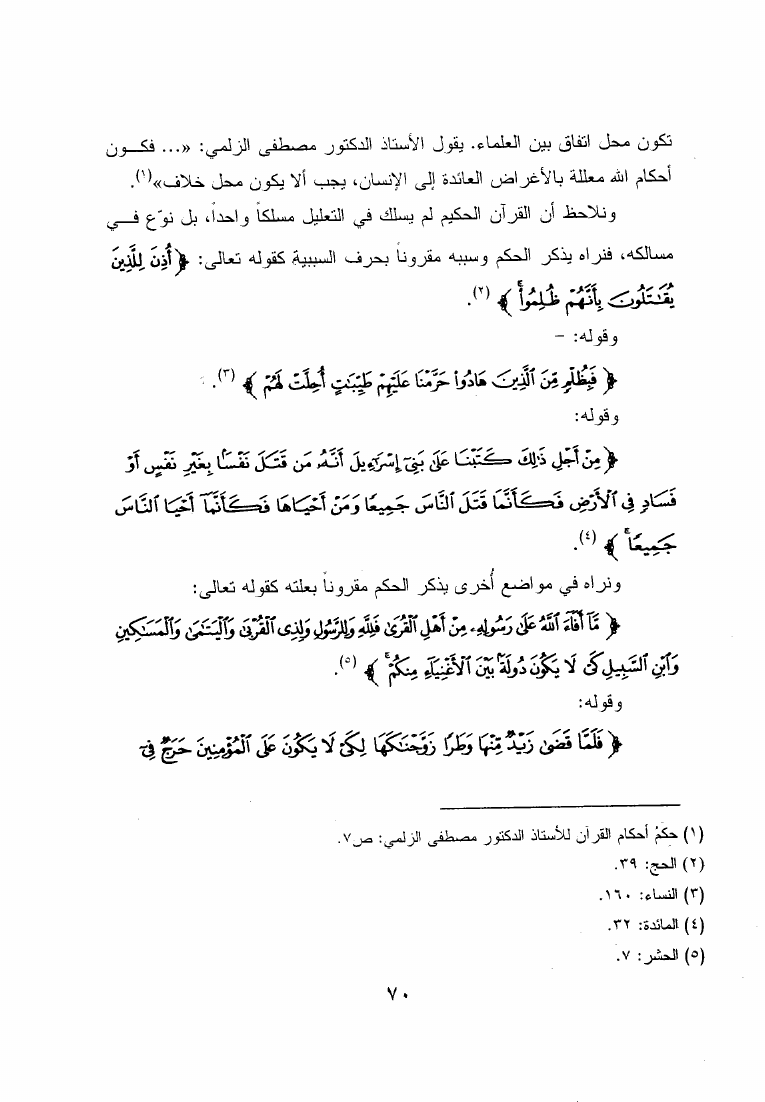 تكون محل اتفاق بين العلماء. يقول الأستاذ الدكتور مصطفى الزلمي: «... فكـــون
أحكام الله معللة بالأغراض العائدة إلى الإنسان، يجب ألا يكون محل خلاف»(١).
ونلاحظ أن القرآن الحكيم لم يسلك في التعليل مسلكاً واحداً، بل نوّع فـــي
مسالكه، فنراه يذكر الحكم وسببه مقروناً بحرف السببية كقوله تعالى: ﴿ أُذِنَ لِلَّذِينَ
يُقَٰتَلُونَ بِأَنَّهُمْ ظُلِمُوا۟ۚ ﴾ (٢).
وقوله: –
﴿ فَبِظُلْمٍ مِّنَ ٱلَّذِينَ هَادُوا۟ حَرَّمْنَا عَلَيْهِمْ طَيِّبَٰتٍ أُحِلَّتْ لَهُمْ ﴾ (٣).
وقوله:
﴿ مِنْ أَجْلِ ذَٰلِكَ كَتَبْنَا عَلَىٰ بَنِىٓ إِسْرَٰٓءِيلَ أَنَّهُۥ مَن قَتَلَ نَفْسًۢا بِغَيْرِ نَفْسٍ أَوْ
فَسَادٍ فِى ٱلْأَرْضِ فَكَأَنَّمَا قَتَلَ ٱلنَّاسَ جَمِيعًا وَمَنْ أَحْيَاهَا فَكَأَنَّمَآ أَحْيَا ٱلنَّاسَ
جَمِيعًاۚ ﴾ (٤).
ونراه في مواضع أُخرى يذكر الحكم مقروناً بعلته كقوله تعالى:
﴿ مَّآ أَفَآءَ ٱللَّهُ عَلَىٰ رَسُولِهِۦ مِنْ أَهْلِ ٱلْقُرَىٰ فَلِلَّهِ وَلِلرَّسُولِ وَلِذِى ٱلْقُرْبَىٰ وَٱلْيَتَٰمَىٰ وَٱلْمَسَٰكِينِ
وَٱبْنِ ٱلسَّبِيلِ كَىْ لَا يَكُونَ دُولَةًۢ بَيْنَ ٱلْأَغْنِيَآءِ مِنكُمْۚ ﴾ (٥).
وقوله:
﴿ فَلَمَّا قَضَىٰ زَيْدٌ مِّنْهَا وَطَرًا زَوَّجْنَٰكَهَا لِكَىْ لَا يَكُونَ عَلَى ٱلْمُؤْمِنِينَ حَرَجٌ فِىٓ
(١) حكمُ أحكام القرآن للأستاذ الدكتور مصطفى الزلمي: ص٧.
(٢) الحج: ٣٩.
(٣) النساء: ١٦٠.
(٤) المائدة: ٣٢.
(٥) الحشر: ٧.
٧٠